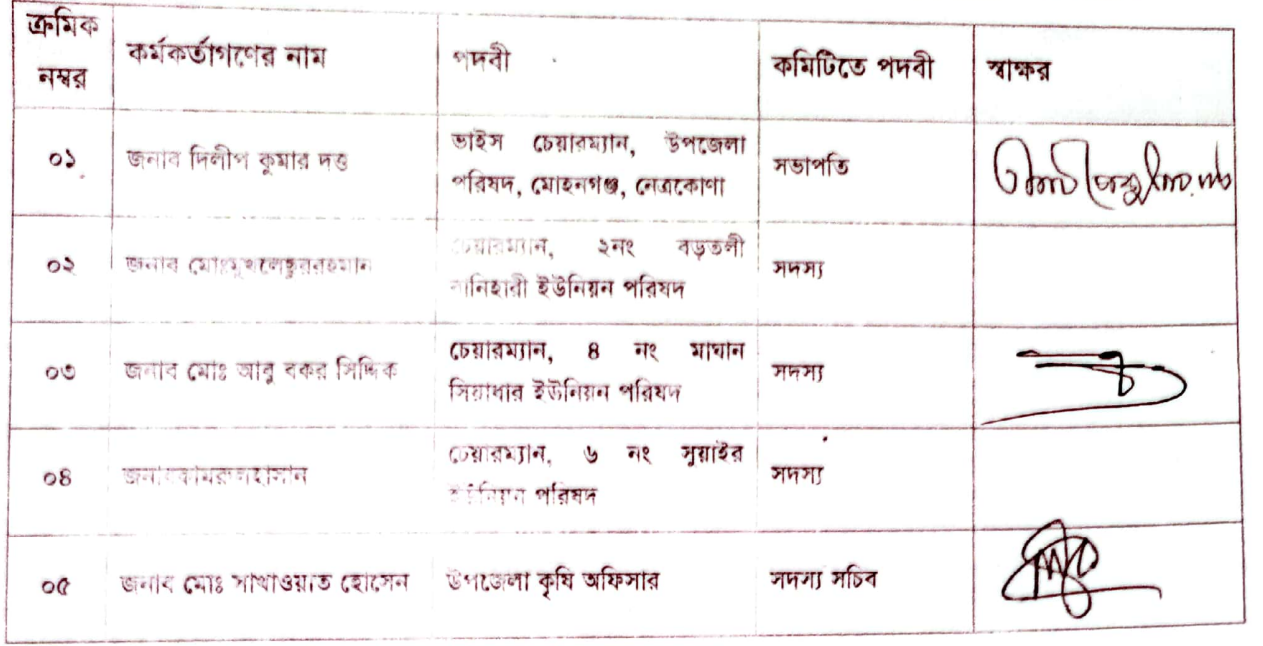 ক্রমিক নম্বর কর্মকর্তাগণের নাম পদবী কমিটিতে পদবী স্বাক্ষর
০১ জনাব দিলীপ কুমার দত্ত ভাইস চেয়ারম্যান, উপজেলা পরিষদ, মোহনগঞ্জ, নেত্রকোণা সভাপতি
০২ জনাব মোঃ চেয়ারম্যান, ২নং বড়তলী বানিহারী ইউনিয়ন পরিষদ সদস্য
০৩ জনাব মোঃ আবু বকর সিদ্দিক চেয়ারম্যান, ৪ নং মাঘান সিয়াধার ইউনিয়ন পরিষদ সদস্য
০৪ জনাবকামরুলহাসান চেয়ারম্যান, ৬ নং সুয়াইর ইউনিয়ন পরিষদ সদস্য
০৫ জনাব মোঃ সাখাওয়াত হোসেন উপজেলা কৃষি অফিসার সদস্য সচিব